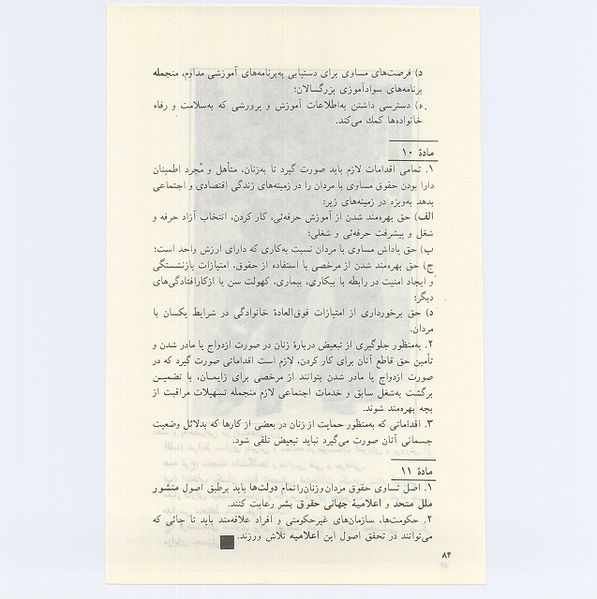 د) فرصت‌های مساوی برای دستیابی به‌برنامه‌های آموزشی مداوم، منجمله
برنامه‌های سوادآموزی بزرگسالان؛
ه) دسترسی داشتن به‌اطلاعات آموزش و پرورشی که به‌سلامت و رفاه
خانواده‌ها کمک می‌کند.
مادهٔ ۱۰
۱. تمامی اقدامات لازم باید صورت گیرد تا به‌زنان، متأهل و مُجرد اطمینان
دارا بودن حقوق مساوی با مردان را در زمینه‌های زندگی اقتصادی و اجتماعی
بدهد به‌ویژه در زمینه‌های زیر:
الف) حق بهره‌مند شدن از آموزش حرفه‌ئی، کار کردن، انتخاب آزاد حرفه و
شغل و پیشرفت حرفه‌ئی و شغلی؛
ب) حق پاداش مساوی با مردان نسبت به‌کاری که دارای ارزش واحد است؛
ج) حق بهره‌مند شدن از مرخصی با استفاده از حقوق، امتیازات بازنشستگی
و ایجاد امنیت در رابطه با بیکاری، بیماری، کهولت سن یا ازکارافتادگی‌های
دیگر؛
د) حق برخورداری از امتیازات فوق‌العادهٔ خانوادگی در شرایط یکسان با
مردان.
۲. به‌منظور جلوگیری از تبعیض دربارهٔ زنان در صورت ازدواج یا مادر شدن و
تأمین حق قاطع آنان برای کار کردن، لازم است اقداماتی صورت گیرد که در
صورت ازدواج یا مادر شدن بتوانند از مرخصی برای زایمـان، با تضمیـن
برگشت به‌شغل سابق و خدمات اجتماعی لازم منجمله تسهیلات مراقبت از
بچه بهره‌مند شوند.
۳. اقداماتی که به‌منظور حمایت از زنان در بعضی از کارها که بدلائل وضعیت
جسمانی آنان صورت می‌گیرد نباید تبعیض تلقی شود.
مادهٔ ۱۱
۱. اصل تساوی حقوق مردان وزنان‌را تمام دولت‌ها باید برطبق اصول منشور
ملل متحد و اعلامیهٔ جهانی حقوق بشر رعایت کنند.
۲. حکومت‌ها، سازمان‌های غیرحکومتی و افراد علاقه‌مند باید تا جائی که
می‌توانند در تحقق اصول این اعلامیه تلاش ورزند.
۸۴